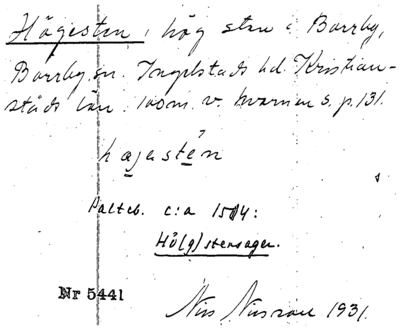 Högesten, hög sten i Borrby,
Borrby sn. Ingelstads hd. Kristian-
stads län. 100 m. v. kvarnen s. p. 131.
høgastén
Palteb. c:a 1514:
Hö(g)stensager.
Nr 5441
Nils Nilsson 1931.